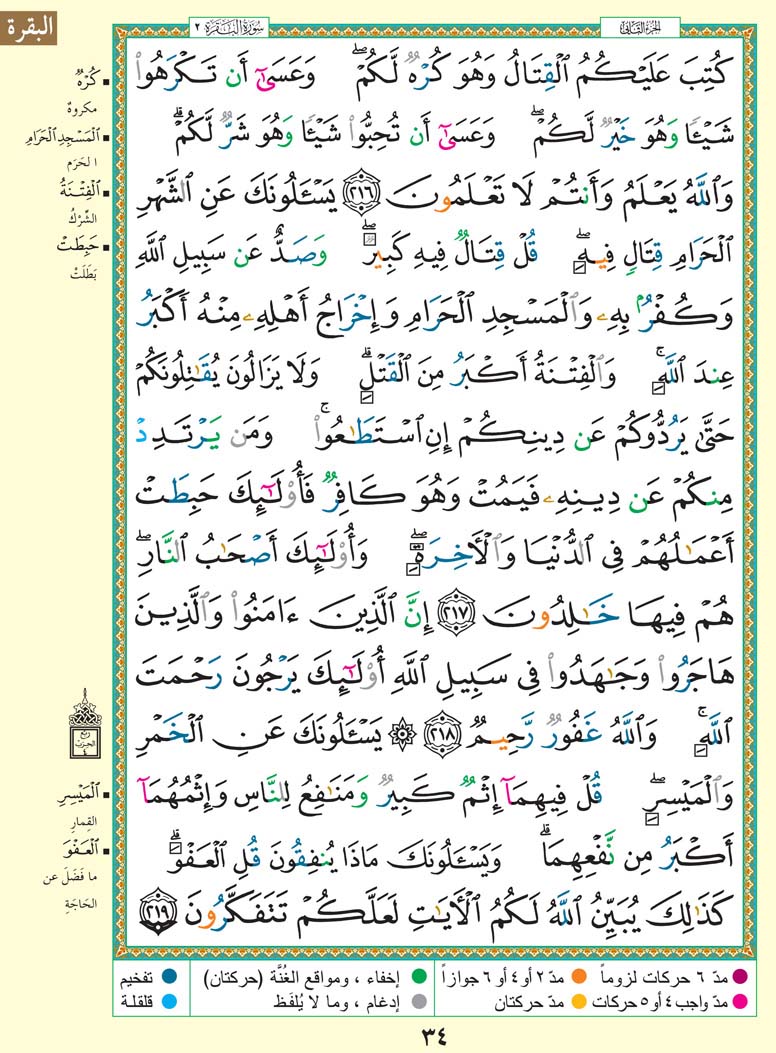 البقرة
الجزء الثاني
سورة البقرة ٢
كُتِبَ عَلَيْكُمُ ٱلْقِتَالُ وَهُوَ كُرْهٌ لَّكُمْ ۖ وَعَسَىٰٓ أَن تَكْرَهُوا۟
شَيْـًٔا وَهُوَ خَيْرٌ لَّكُمْ ۖ وَعَسَىٰٓ أَن تُحِبُّوا۟ شَيْـًٔا وَهُوَ شَرٌّ لَّكُمْ ۗ
وَٱللَّهُ يَعْلَمُ وَأَنتُمْ لَا تَعْلَمُونَ ٢١٦ يَسْـَٔلُونَكَ عَنِ ٱلشَّهْرِ
ٱلْحَرَامِ قِتَالٍ فِيهِ ۖ قُلْ قِتَالٌ فِيهِ كَبِيرٌ ۖ وَصَدٌّ عَن سَبِيلِ ٱللَّهِ
وَكُفْرٌۢ بِهِۦ وَٱلْمَسْجِدِ ٱلْحَرَامِ وَإِخْرَاجُ أَهْلِهِۦ مِنْهُ أَكْبَرُ
عِندَ ٱللَّهِ ۚ وَٱلْفِتْنَةُ أَكْبَرُ مِنَ ٱلْقَتْلِ ۗ وَلَا يَزَالُونَ يُقَـٰتِلُونَكُمْ
حَتَّىٰ يَرُدُّوكُمْ عَن دِينِكُمْ إِنِ ٱسْتَطَـٰعُوا۟ ۚ وَمَن يَرْتَدِدْ
مِنكُمْ عَن دِينِهِۦ فَيَمُتْ وَهُوَ كَافِرٌ فَأُو۟لَـٰٓئِكَ حَبِطَتْ
أَعْمَـٰلُهُمْ فِى ٱلدُّنْيَا وَٱلْـَٔاخِرَةِ ۖ وَأُو۟لَـٰٓئِكَ أَصْحَـٰبُ ٱلنَّارِ ۖ
هُمْ فِيهَا خَـٰلِدُونَ ٢١٧ إِنَّ ٱلَّذِينَ ءَامَنُوا۟ وَٱلَّذِينَ
هَاجَرُوا۟ وَجَـٰهَدُوا۟ فِى سَبِيلِ ٱللَّهِ أُو۟لَـٰٓئِكَ يَرْجُونَ رَحْمَتَ
ٱللَّهِ ۚ وَٱللَّهُ غَفُورٌ رَّحِيمٌ ٢١٨ ۞ يَسْـَٔلُونَكَ عَنِ ٱلْخَمْرِ
وَٱلْمَيْسِرِ ۖ قُلْ فِيهِمَآ إِثْمٌ كَبِيرٌ وَمَنَـٰفِعُ لِلنَّاسِ وَإِثْمُهُمَآ
أَكْبَرُ مِن نَّفْعِهِمَا ۗ وَيَسْـَٔلُونَكَ مَاذَا يُنفِقُونَ قُلِ ٱلْعَفْوَ ۗ
كَذَٰلِكَ يُبَيِّنُ ٱللَّهُ لَكُمُ ٱلْـَٔايَـٰتِ لَعَلَّكُمْ تَتَفَكَّرُونَ ٢١٩
كُرْهٌ
مكروهٌ
ٱلْمَسْجِدِ ٱلْحَرَامِ
الحَرَم
ٱلْفِتْنَةُ
الشِّرْكُ
حَبِطَتْ
بَطَلَتْ
ربع
الحزب
٤
ٱلْمَيْسِرِ
القِمارِ
ٱلْعَفْوَ
ما فَضَلَ عن
الحَاجَةِ
مدّ ٦ حركات لزوماً
مدّ ٢ أو ٤ أو ٦ جوازاً
إخفاء ، ومواقع الغُنَّة (حركتان)
تفخيم
مدّ واجب ٤ أو ٥ حركات
مدّ حركتان
إدغام ، وما لا يُلفَظ
قلقلة
٣٤